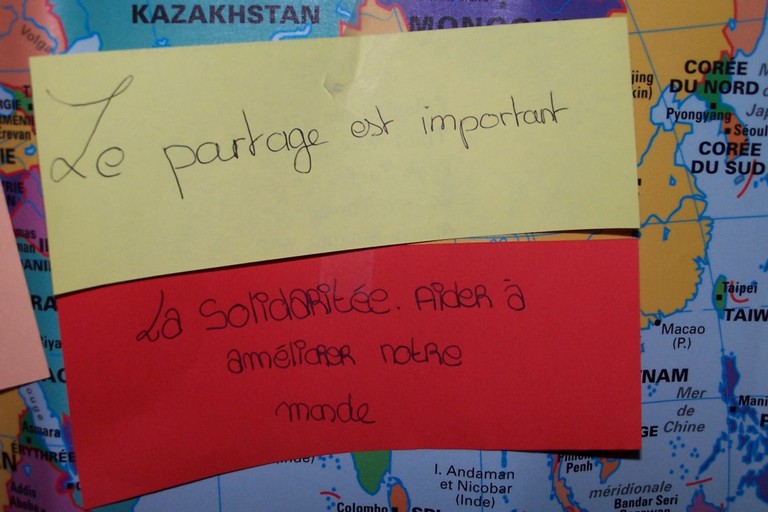 KAZAKHSTAN
Volga
Le partage est important
La Solidaritée. Aider à
améliorer notre
monde
CORÉE
DU NORD
Pyongyang
Séoul
CORÉE
DU SUD
Taipei
TAIW
Macao
(P.)
NAM
Mer
de
Chine
méridionale
Mani
Asmara
ÉRYTHRÉE
Addis
Abeba
I. Andaman
et Nicobar
(Inde)
Colombo
Penh
Bandar Seri